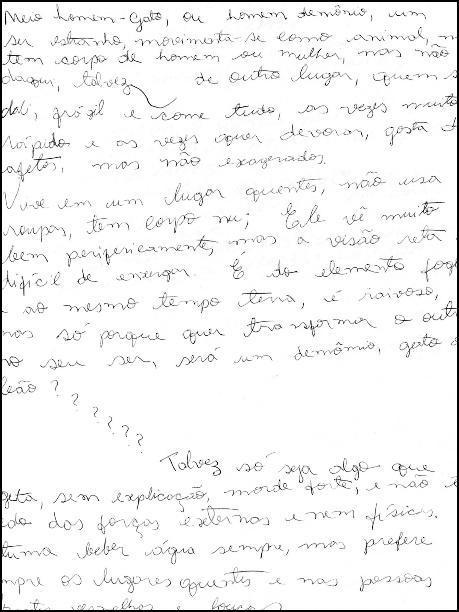 Meio homem-Gato, ou homem demônio, um
ser estranho, movimenta-se como animal, m
tem corpo de homem ou mulher, mas não
daqui, talvez de outro lugar, quem s
dali, frágil e come tudo, as vezes muito
rápido e as vezes quer devorar, gosta d
afetos, mas não exagerados.
Vive em um lugar quentes, não usa
roupas, tem corpo nu; Ele vê muito
bem perifericamente, mas a visão reta
difícil de enxergar. É do elemento fogo
e ao mesmo tempo terra, é raivoso,
mas só porque quer transformar o outr
no seu ser, será um demômio, gato o
leão ?
? ? ? ? ?
Talvez só seja algo que
grita, sem explicação, morde forte, e não é
das forças externas e nem físicas.
tuma beber água sempre, mas prefere
mpre os lugares quentes e nas pessoas